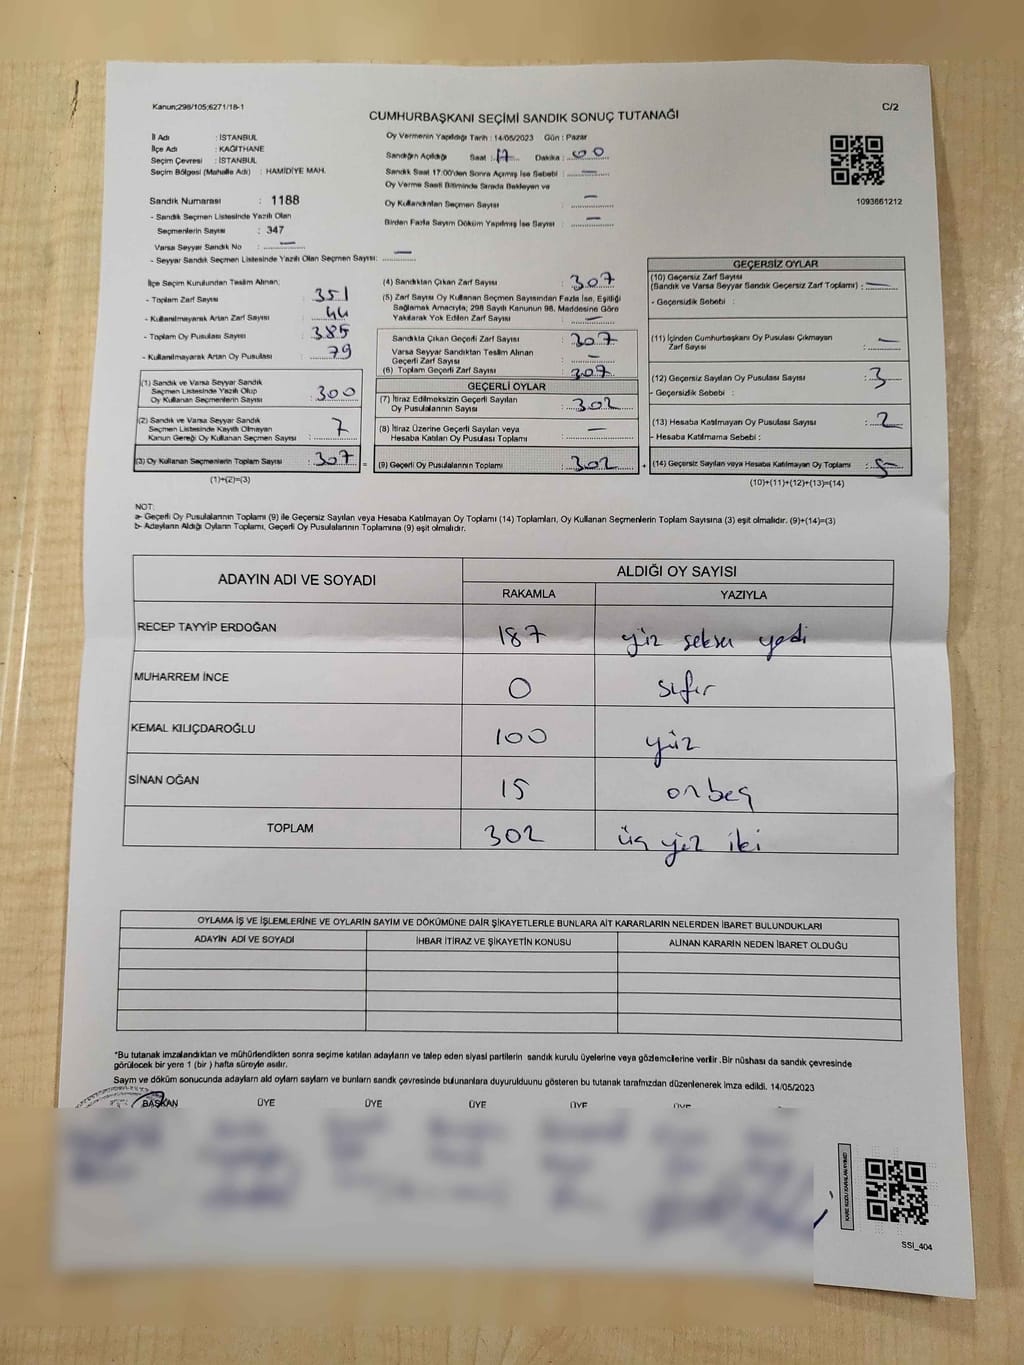 Kanun;298/105;6271/18-1
C/2
CUMHURBAŞKANI SEÇİMİ SANDIK SONUÇ TUTANAĞI
İl Adı : İSTANBUL
İlçe Adı : KAĞITHANE
Seçim Çevresi : İSTANBUL
Seçim Bölgesi (Mahalle Adı) : HAMİDİYE MAH.
Oy Vermenin Yapıldığı Tarih : 14/05/2023 Gün : Pazar
Sandığın Açıldığı Saat : 17 Dakika : 00
Sandık Saat 17:00'den Sonra Açılmış İse Sebebi : —
Oy Verme Saati Bitiminde Sırada Bekleyen ve
Oy Kullandırılan Seçmen Sayısı —
Birden Fazla Sayım Döküm Yapılmış İse Sayısı : —
1093661212
Sandık Numarası : 1188
- Sandık Seçmen Listesinde Yazılı Olan
Seçmenlerin Sayısı : 347
Varsa Seyyar Sandık No : —
- Seyyar Sandık Seçmen Listesinde Yazılı Olan Seçmen Sayısı: —
İlçe Seçim Kurulundan Teslim Alınan;
- Toplam Zarf Sayısı : 351
- Kullanılmayarak Artan Zarf Sayısı : 44
- Toplam Oy Pusulası Sayısı : 385
- Kullanılmayarak Artan Oy Pusulası : 79
(1) Sandık ve Varsa Seyyar Sandık
Seçmen Listesinde Yazılı Olup
Oy Kullanan Seçmenlerin Sayısı : 300
(2) Sandık ve Varsa Seyyar Sandık
Seçmen Listesinde Kayıtlı Olmayan
Kanun Gereği Oy Kullanan Seçmen Sayısı : 7
(3) Oy Kullanan Seçmenlerin Toplam Sayısı : 307
(1)+(2)=(3)
(4) Sandıktan Çıkan Zarf Sayısı : 307
(5) Zarf Sayısı Oy Kullanan Seçmen Sayısından Fazla İse, Eşitliği
Sağlamak Amacıyla; 298 Sayılı Kanunun 98. Maddesine Göre
Yakılarak Yok Edilen Zarf Sayısı : —
Sandıkta Çıkan Geçerli Zarf Sayısı : 307
Varsa Seyyar Sandıktan Teslim Alınan
Geçerli Zarf Sayısı : —
(6) Toplam Geçerli Zarf Sayısı : 307
GEÇERLİ OYLAR
(7) İtiraz Edilmeksizin Geçerli Sayılan
Oy Pusulalarının Sayısı : 302
(8) İtiraz Üzerine Geçerli Sayılan veya
Hesaba Katılan Oy Pusulası Toplamı : —
= (9) Geçerli Oy Pusulalarının Toplamı : 302
GEÇERSİZ OYLAR
(10) Geçersiz Zarf Sayısı
(Sandık ve Varsa Seyyar Sandık Geçersiz Zarf Toplamı) : —
- Geçersizlik Sebebi :
(11) İçinden Cumhurbaşkanı Oy Pusulası Çıkmayan
Zarf Sayısı : —
(12) Geçersiz Sayılan Oy Pusulası Sayısı : 3
- Geçersizlik Sebebi :
(13) Hesaba Katılmayan Oy Pusulası Sayısı : 2
- Hesaba Katılmama Sebebi :
+ (14) Geçersiz Sayılan veya Hesaba Katılmayan Oy Toplamı : 5
(10)+(11)+(12)+(13)=(14)
NOT:
a- Geçerli Oy Pusulalarının Toplamı (9) ile Geçersiz Sayılan veya Hesaba Katılmayan Oy Toplamı (14) Toplamları, Oy Kullanan Seçmenlerin Toplam Sayısına (3) eşit olmalıdır. (9)+(14)=(3)
b- Adayların Aldığı Oyların Toplamı, Geçerli Oy Pusulalarının Toplamına (9) eşit olmalıdır.
ADAYIN ADI VE SOYADI
ALDIĞI OY SAYISI
RAKAMLA YAZIYLA
RECEP TAYYİP ERDOĞAN 187 yüz seksen yedi
MUHARREM İNCE 0 sıfır
KEMAL KILIÇDAROĞLU 100 yüz
SİNAN OĞAN 15 onbeş
TOPLAM 302 üç yüz iki
OYLAMA İŞ VE İŞLEMLERİNE VE OYLARIN SAYIM VE DÖKÜMÜNE DAİR ŞİKAYETLERLE BUNLARA AİT KARARLARIN NELERDEN İBARET BULUNDUKLARI
ADAYIN ADI VE SOYADI İHBAR İTİRAZ VE ŞİKAYETİN KONUSU ALINAN KARARIN NEDEN İBARET OLDUĞU
*Bu tutanak imzalandıktan ve mühürlendikten sonra seçime katılan adayların ve talep eden siyasi partilerin sandık kurulu üyelerine veya gözlemcilerine verilir .Bir nüshası da sandık çevresinde
görülecek bir yere 1 (bir ) hafta süreyle asılır.
Sayım ve döküm sonucunda adayların ald oyların sayların ve bunların sandk çevresinde bulunanlara duyurulduunu gösteren bu tutanak tarafmzdan düzenlenerek imza edildi. 14/05/2023
BAŞKAN ÜYE ÜYE ÜYE ÜYE ÜYE
SSI_404